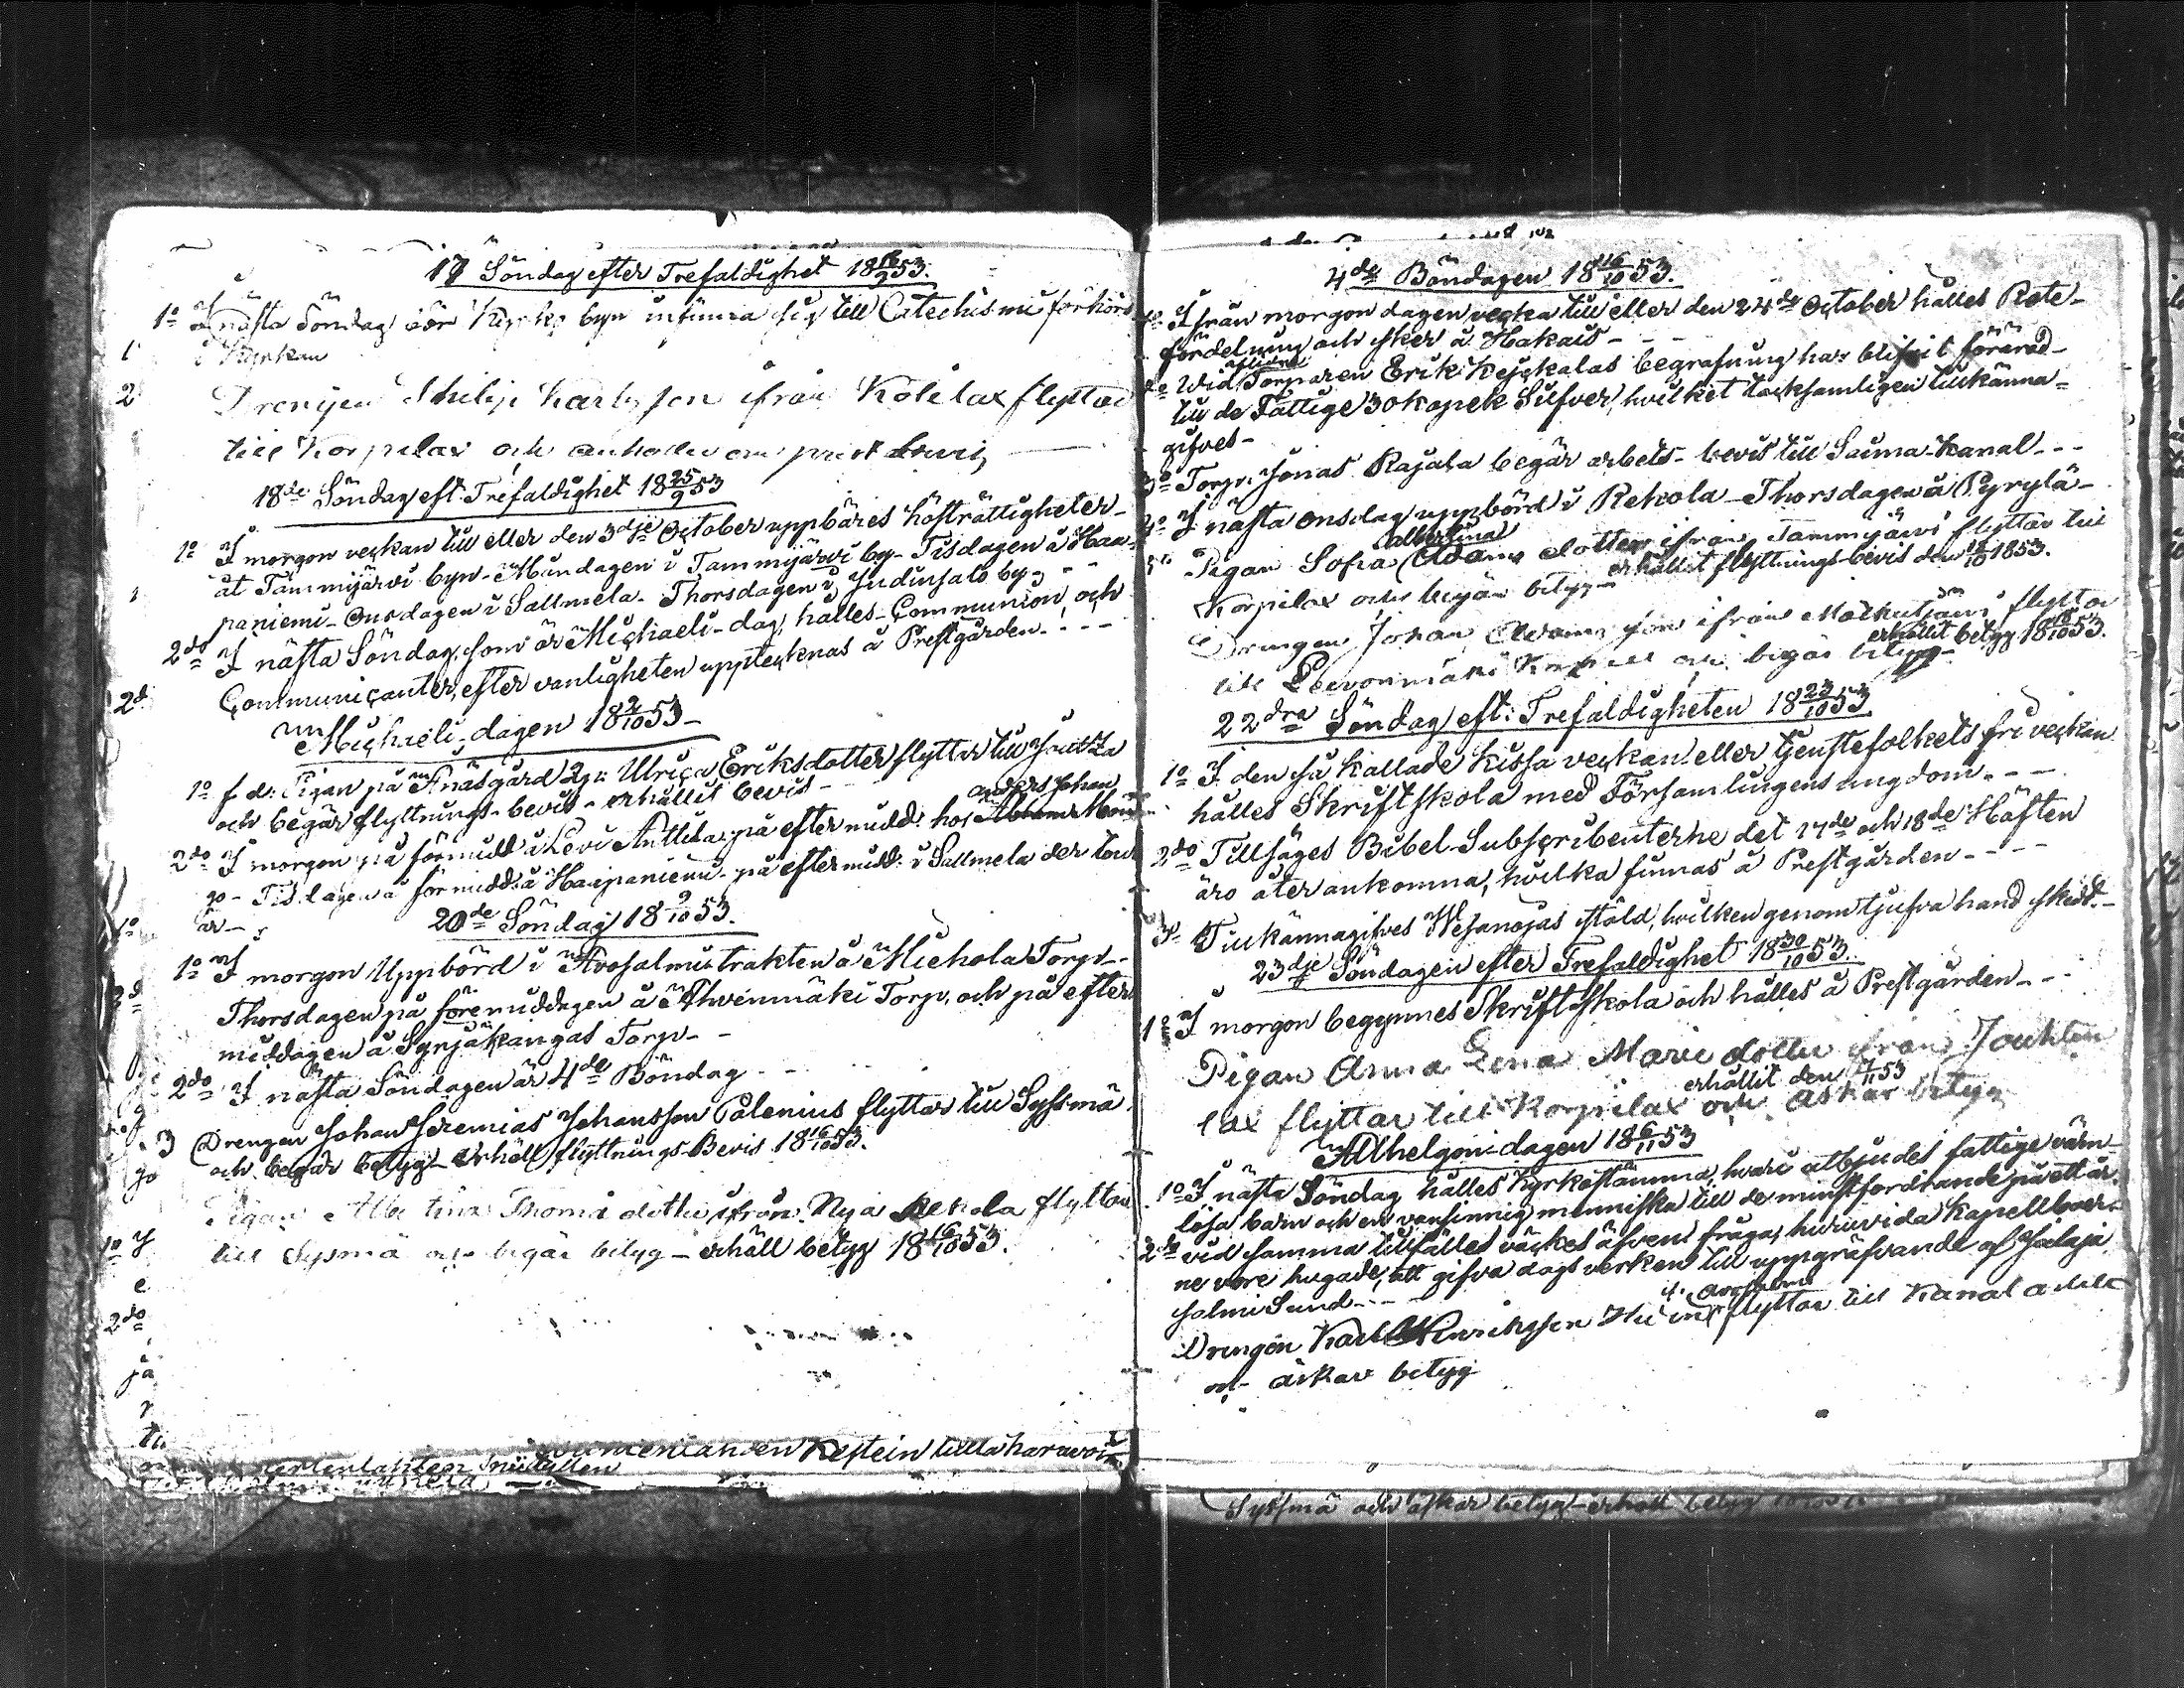 17 Söndag efter Trefaldighet 18 18/9 53.
1o I nästa Söndag bör Kyrko byn infinna sig till Catechismi förhörs
i Kyrkan
Drengen Philip Karlsson ifrån Kälelax flyttar
till Korpilax och anhåller om prest bevis
18de Söndag eft: Trefaldighet 18 25/9 53
1o I morgon veckan till eller den 3dje October uppbäres höströttigheter
åt Tammijärvi byn - Måndagen i Tammijärvi by - Tisdagen å Haa-
paniemi - Onsdagen i Sallmela - Thorsdagen i Judinsalo by -
2do I nästa Söndag, som är Michaeli-dag, hålles Communion, och
Communicanter, efter vanligheten upptecknas å Prestgården - - -
Michaeli-dagen 18 2/10 53 -
1o f. d. Pigan på Anäsgård Ulrica Eriksdotter flyttar till Joutsa
och begär flyttnings-bevis - erhållit bevis -
2do I morgon på förmidd. å Levi Anttila: på eftermidd. hos Anders Johan
go - Tisdagen å förmidd. å Haapaniemi - på eftermidd: i Sallmela der tour
är -
20de Söndag 18 9/10 53.
1o I morgon Uppbörd i Avosalmi trakten å Miehola Torp -
Thorsdagen på föremiddagen å Ahvenmäki Torp, och på efter
middagen å Syrjäkangas Torp -
2do I nästa Söndagen är 4de Böndag - - -
3 Drengen Johan Jeremias Johansson Palenius flyttar till Syssmä
och begär betyg - Erhöll flyttnings-Bevis 18 16/10 53.
Pigan Albertina Thomä dotter ifrån Nya Rekola flyttar
till Sysmä och begär betyg - erhöll betyg 18 16/10 53.
Kestein tulla
4de Böndagen 18 16/10 53.
1o Ifrån morgon dagen veckan till eller den 24de October hålles Rote-
fördelning och sker å Hakais - - -
2o Wid aflidne Torparen Erik Kejskalas begrafning har blifvit förärad
till de Fattige 30 kopek Silfver, hvilket tacksamligen tillkänna-
gifves -
3o Torp: Jonas Rajala begär arbets-bevis till Saima-Kanal - - -
4o I nästa onsdag uppbörd i Rekola - Thorsdagen å Pyrylä -
5o Pigan Sofia Albertina Adams dotter ifrån Tammijärvi flyttar till
Korpilax och begär betyg - erhållit flyttnings-bevis den 18/10 1853.
Drengen Johan Adams son ifrån flyttar
till Leivonmäki Kapell och begär betyg - erhållit betyg 18 16/10 53.
22dra Söndag eft: Trefaldigheten 18 23/10 53
1o I den så kallade Kissa veckan eller tjenstefolkets fri veckan
hålles Skriftskola med Församlingens ungdom. - -
2do Tillsäges Bibel-Subscribenterne det 17de och 18de Häften
äro åter ankomna, hvilka finnas å Prestgården - - - -
3o Tillkännagifves Wehanojas stöld, hvilken genom tjufva hand skedt. -
23dje Söndagen efter Trefaldighet 18 30/10 53.
1o I morgon begynnes Skriftskola och hålles å Prestgården - -
Pigan Anna Lena Marie dotter ifrån Jouhten
lax flyttar till Korpilax och äskar betyg
erhållit den 7/11 53
Allhelgoni-dagen 18 6/11 53
1o I nästa Söndag hålles Kyrkostämma, hvari utbjudes fattige värn-
lösa barn och en vansinnig menniska till de minstfordrande på ett år.
2do vid samma tillfället väckes äfven fråga, huruvida Kapellboer-
ne vore hugade, att gifva dagsverken till uppgräfvande af Jalaja
salmi Sund - - -
Drengen Karl Henriksson flyttar till Kanal arbete
och äskar betyg
Syssmä och äskar betyg - erhöll betyg